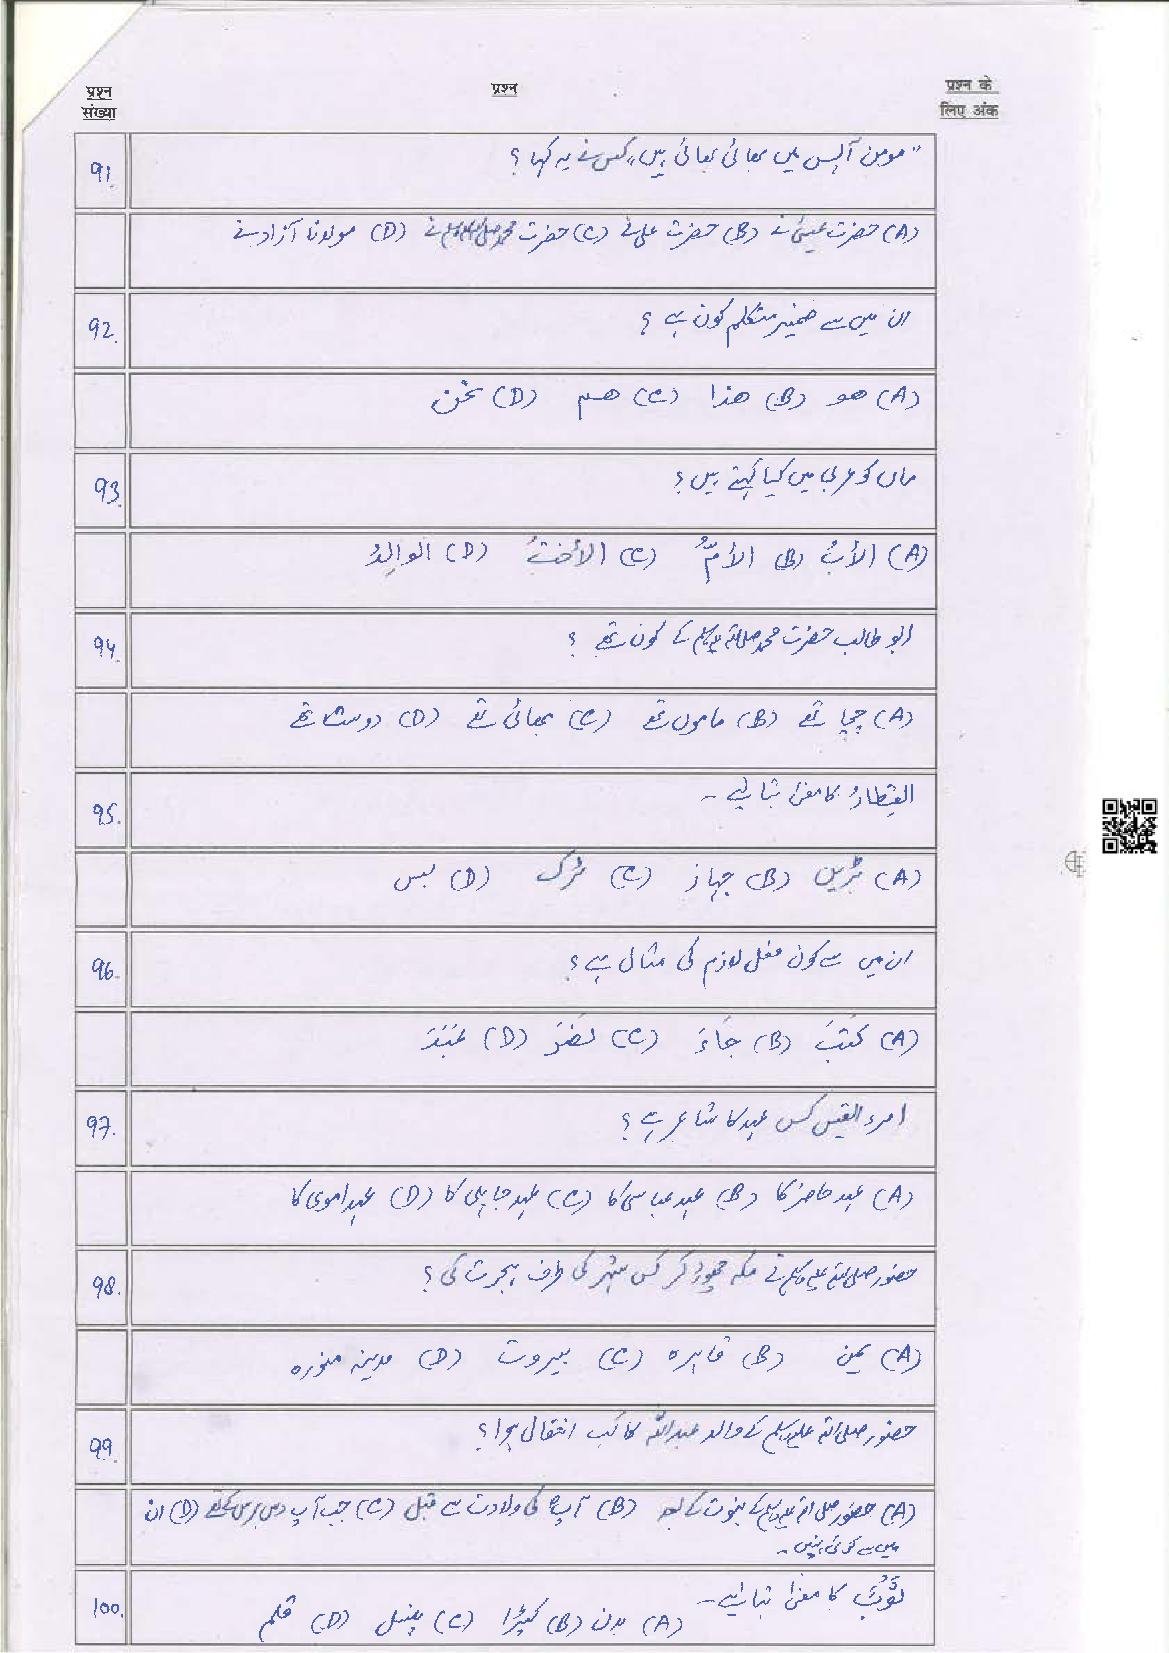 प्रश्न संख्या
प्रश्न
प्रश्न के लिए अंक
91. "مومن آپس میں بھائی بھائی ہیں" کس نے یہ کہا ؟
(A) حضرت عیسیٰ نے (B) حضرت علی نے (C) حضرت محمد صلی اللہ علیہ وسلم نے (D) مولانا آزاد نے
92. ان میں سے ضمیر متکلم کون ہے ؟
(A) ھو (B) ھذا (C) ھم (D) نحن
93. ماں کو عربی میں کیا کہتے ہیں ؟
(A) الأبُ (B) الأمُّ (C) الأختُ (D) الوالِدُ
94. ابو طالب حضرت محمد صلی اللہ علیہ وسلم کے کون تھے ؟
(A) چچا تھے (B) ماموں تھے (C) بھائی تھے (D) دوست تھے
95. القِطارُ کا معنیٰ بتائیے ۔
(A) ٹرین (B) جہاز (C) ٹرک (D) بس
96. ان میں سے کون فعل لازم کی مثال ہے ؟
(A) کَتَبَ (B) جَاءَ (C) نَصَرَ (D) عَبَدَ
97. امرء القیس کس عہد کا شاعر ہے ؟
(A) عہد حاضر کا (B) عہد عباسی کا (C) عہد جاہلی کا (D) عہد اموی کا
98. حضور صلی اللہ علیہ وسلم نے مکہ چھوڑ کر کس شہر کی طرف ہجرت کی ؟
(A) یمن (B) قاہرہ (C) بیروت (D) مدینہ منورہ
99. حضور صلی اللہ علیہ وسلم کے والد عبداللہ کا کب انتقال ہوا ؟
(A) حضور صلی اللہ علیہ وسلم کے نبوت کے بعد (B) آپ کی ولادت سے قبل (C) جب آپ دس برس کے تھے (D) ان
میں سے کوئی نہیں ۔
100. ثَوْبٌ کا معنیٰ بتائیے ۔
(A) بدن (B) کپڑا (C) پنسل (D) قلم